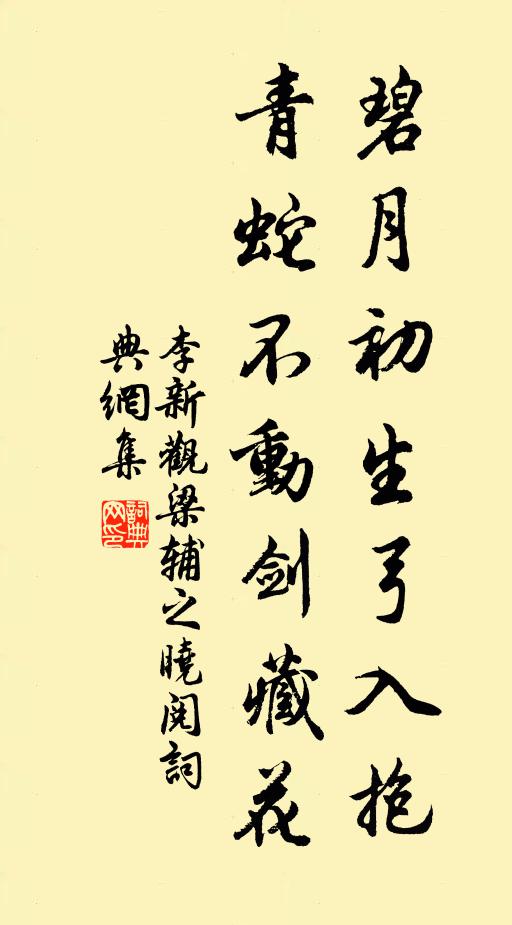 碧月初生弓入抱
青蛇不動劍藏花
李新觀梁輔之曉閱詞
典網集
詞典
网印